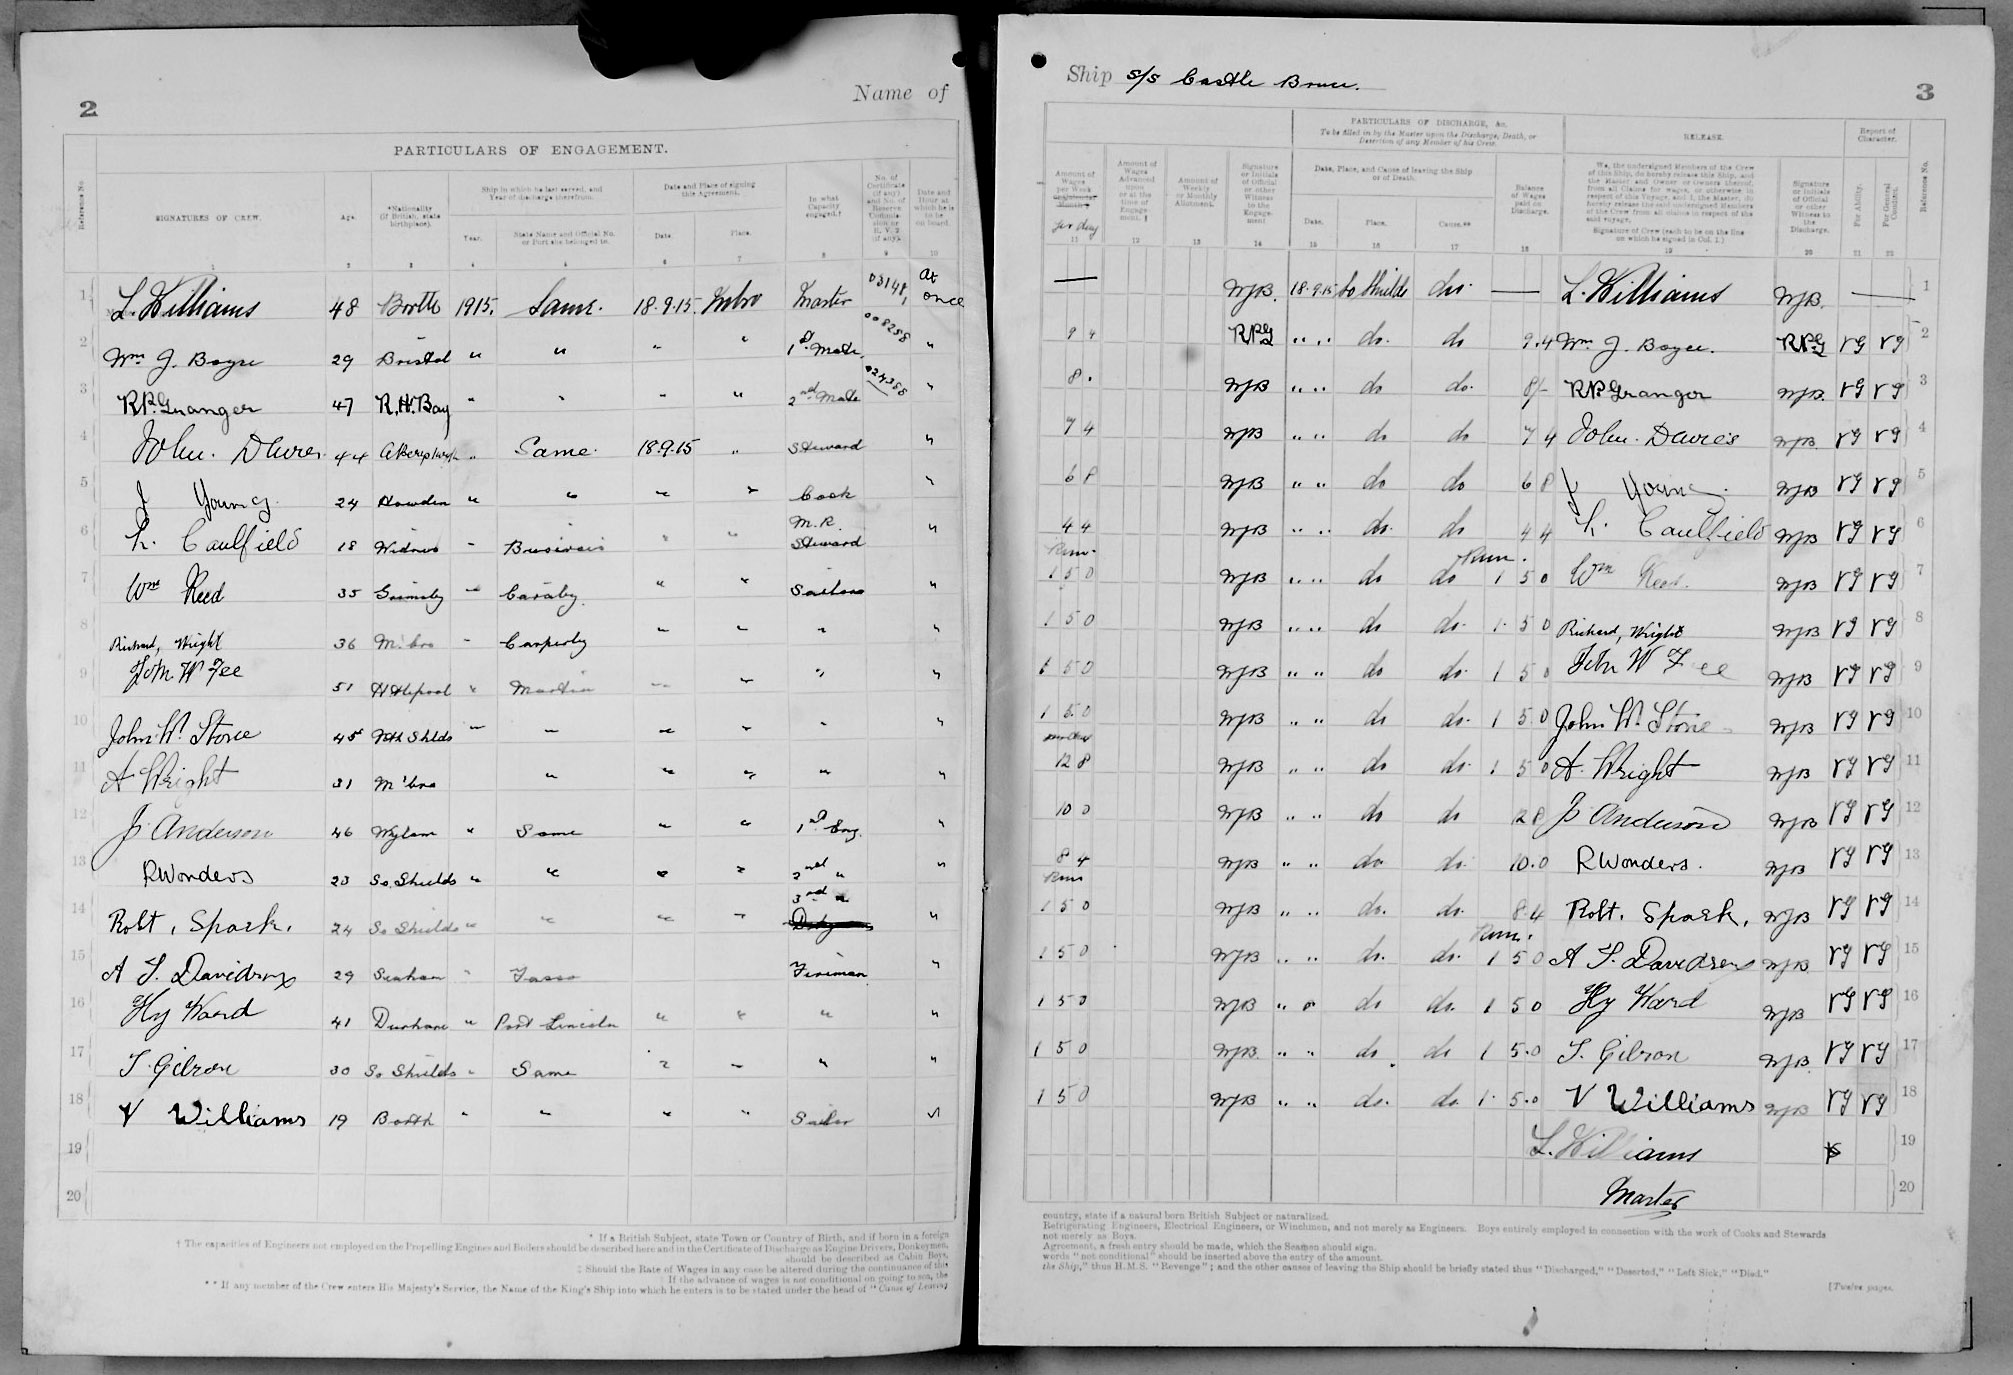 2
Name of
PARTICULARS OF ENGAGEMENT.
Reference No.
SIGNATURES OF CREW.
Age.
*Nationality (if British, state birthplace).
Ship in which he last served, and Year of discharge therefrom.
Year.
State Name and Official No. or Port she belonged to.
Date and Place of signing this Agreement.
Date.
Place.
In what Capacity engaged.†
No. of Certificate (if any) and No. of Reserve
Date and Hour at which he is to be on board.
1 2 3 4 5 6 7 8 9 10
1 L. Williams 48 Borth 1915. Same. 18.9.15 Mbro Master 03148 At once
2 Wm J. Boyce 29 Bristol " " " " 1st Mate 008258 "
3 R.P. Granger 47 R.H. Bay " " " " 2nd Mate "
4 John. Davies 44 " Same. 18.9.15 " Steward "
5 J Young. 24 Howden " " " " Cook "
6 Caulfield 18 Widnes " " " M.R. Steward "
7 Wm Reed 35 Grimsby " " " Sailors "
8 Richard, Wright 36 M'bro " Carperby " " " "
9 John W Fee 51 " " " " "
10 John W. Stone 45 Nth Shlds " " " " " "
11 A Wright 31 M'bro " " " " "
12 Anderson 46 Wylam " Same " " 1st Eng. "
13 R Wonders 23 So. Shields " " " " 2nd " "
14 Robt, Spark, 24 So Shields " " " " 3rd " "
15 A S. Davidson 29 Seaham " Fireman "
16 Hy Ward 41 Durham " Port Lincoln " " " "
17 T. Gibson 30 So Shields " Same " " " "
18 V Williams 19 Borth " " " " Sailor "
19
20
* If a British Subject, state Town or Country of Birth, and if born in a foreign
† The capacities of Engineers not employed on the Propelling Engines and Boilers should be described here and in the Certificate of Discharge as Engine Drivers, Donkeymen,
should be described as Cabin Boys,
‡ Should the Rate of Wages in any case be altered during the continuance of this
If the advance of wages is not conditional on going to sea, the
** If any member of the Crew enters His Majesty's Service, the Name of the King's Ship into which he enters is to be stated under the head of "Cause of Leaving
Ship s/s Castle Bruce.
3
PARTICULARS OF DISCHARGE, &c.
To be filled in by the Master upon the Discharge, Death, or Desertion of any Member of his Crew.
RELEASE.
Report of Character.
Amount of Wages per Week
per day
Amount of Wages Advanced upon or at the time of Engagement.
Amount of Weekly or Monthly Allotment.
Signature or Initials of Official or other Witness to the Engagement
Date, Place, and Cause of leaving the Ship or of Death.
Date.
Place.
Cause.**
Balance of Wages paid on Discharge.
We, the undersigned Members of the Crew of this Ship, do hereby release this Ship, and the Master and Owner or Owners thereof, from all Claims for wages, or otherwise in respect of this Voyage, and I, the Master, do hereby release the said undersigned Members of the Crew from all claims in respect of the said voyage.
Signature of Crew (each to be on the line on which he signed in Col. 1.)
Signature or Initials of Official or other Witness to the Discharge.
For Ability.
For General Conduct.
Reference No.
11 12 13 14 15 16 17 18 19 20 21 22
WJB. 18.9.15 So Shields dis. L. Williams WJB. 1
9 4 RPG " " do. do 9.4 Wm J. Boyce. RPG VG VG 2
8. WJB " " do do. 8/- R.P. Granger WJB. VG VG 3
7 4 WJB " " do do 7 4 John. Davies WJB VG VG 4
6 8 WJB " " do do 6 8 J Young. WJB VG VG 5
4 4 WJB " " do. do 4 4 Caulfield WJB VG VG 6
Run. Run.
1 5 0 WJB " " do do 1 5 0 Wm Reed. WJB VG VG 7
1 5 0 WJB " " do do. 1. 5 0 Richard, Wright WJB VG VG 8
1 5 0 WJB " " do do. 1 5 0 John W Fee WJB VG VG 9
1 5.0 WJB " " do do. 1 5.0 John W. Stone WJB VG VG 10
12 8 WJB " " do do. 1 5 0 A. Wright WJB VG VG 11
10 0 WJB " " do do 12 8 Anderson WJB VG VG 12
8 4 WJB " " do do. 10.0 R Wonders. WJB VG VG 13
Run
1 5 0 WJB " " do. do. 8.4 Robt, Spark, WJB VG VG 14
Run.
1 5 0 WJB " " do. do. 1 5 0 A S. Davidson WJB VG VG 15
1 5 0 WJB " " do do. 1 5 0 Hy Ward WJB VG VG 16
1 5 0 WJB " " do do 1 5.0 T. Gibson WJB VG VG 17
1 5 0 WJB " " do. do. 1. 5.0 V Williams WJB VG VG 18
L. Williams 19
Master 20
country, state if a natural born British Subject or naturalized.
Refrigerating Engineers, Electrical Engineers, or Winchmen, and not merely as Engineers. Boys entirely employed in connection with the work of Cooks and Stewards
not merely as Boys.
Agreement, a fresh entry should be made, which the Seamen should sign.
words "not conditional" should be inserted above the entry of the amount.
the Ship," thus H.M.S. "Revenge"; and the other causes of leaving the Ship should be briefly stated thus "Discharged," "Deserted," "Left Sick," "Died."
[Twelve pages.